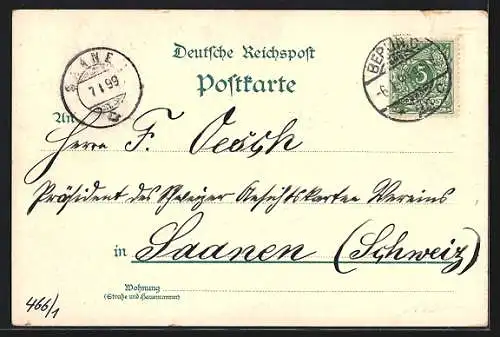 Deutsche Reichspost
Postkarte
SAANEN
7 I 99
BERLIN, C.
5
An
Herrn F. Oesch
Präsident des Schweizer Ansichtskarten Vereins
in Saanen (Schweiz)
Wohnung
(Straße und Hausnummer)
466/1